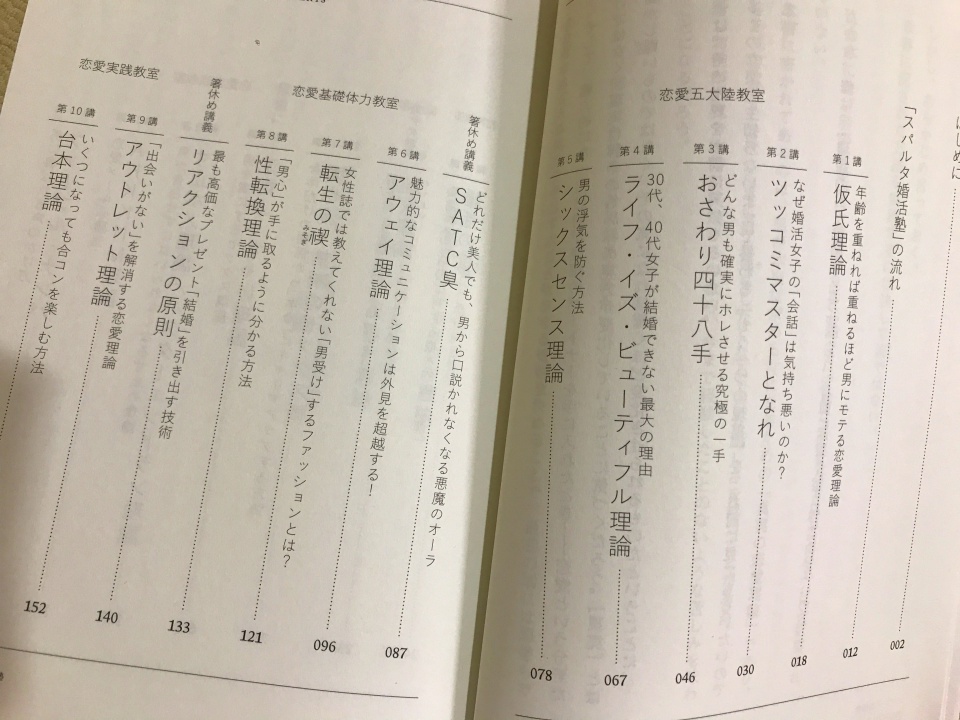 はじめに 002
「スパルタ婚活塾」の流れ 012
恋愛五大陸教室
第1講
年齢を重ねれば重ねるほど男にモテる恋愛理論
仮氏理論 018
第2講
なぜ婚活女子の「会話」は気持ち悪いのか?
ツッコミマスターとなれ 030
第3講
どんな男も確実にホレさせる究極の一手
おさわり四十八手 046
第4講
30代、40代女子が結婚できない最大の理由
ライフ・イズ・ビューティフル理論 067
第5講
男の浮気を防ぐ方法
シックスセンス理論 078
箸休め講義
どれだけ美人でも、男から口説かれなくなる悪魔のオーラ
SATC臭 087
恋愛基礎体力教室
第6講
魅力的なコミュニケーションは外見を超越する!
アウェイ理論 096
第7講
女性誌では教えてくれない「男受け」するファッションとは?
転生の禊 121
みそぎ
第8講
「男心」が手に取るように分かる方法
性転換理論 133
箸休め講義
最も高価なプレゼント「結婚」を引き出す技術
リアクションの原則 140
恋愛実践教室
第9講
「出会いがない」を解消する恋愛理論
アウトレット理論 152
第10講
いくつになっても合コンを楽しむ方法
台本理論